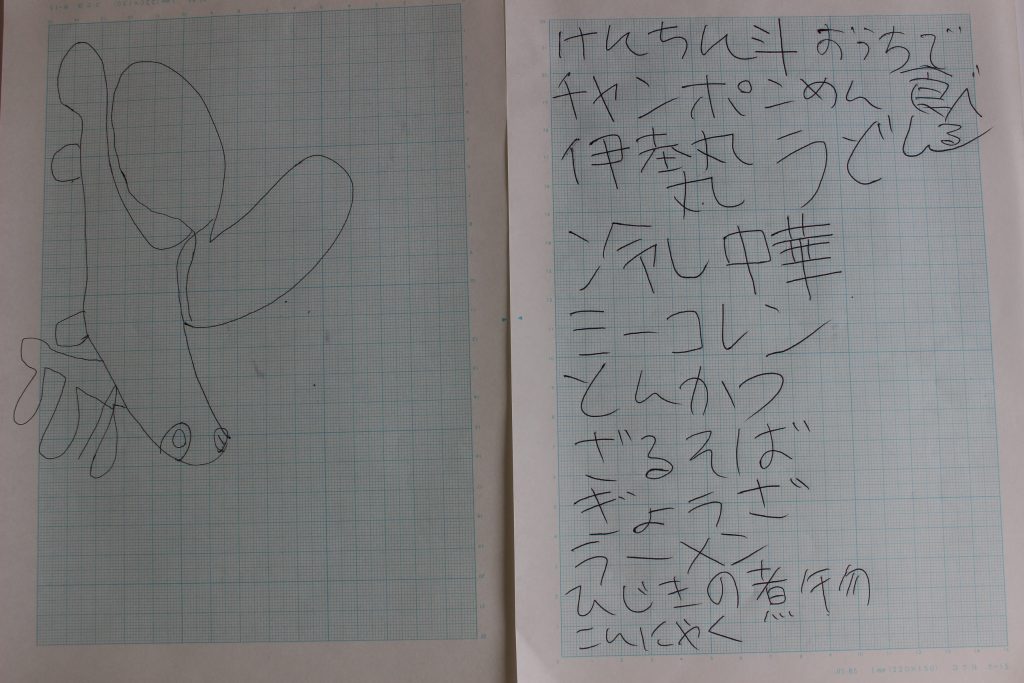 けんちん斗 おうちで
チャンポンめん 食べ
丸 うど る
丸
冷やし中華
ミーコレン
とんかつ
ざるそば
ぎょうざ
ラーメン
ひじきの煮物
こんにゃく